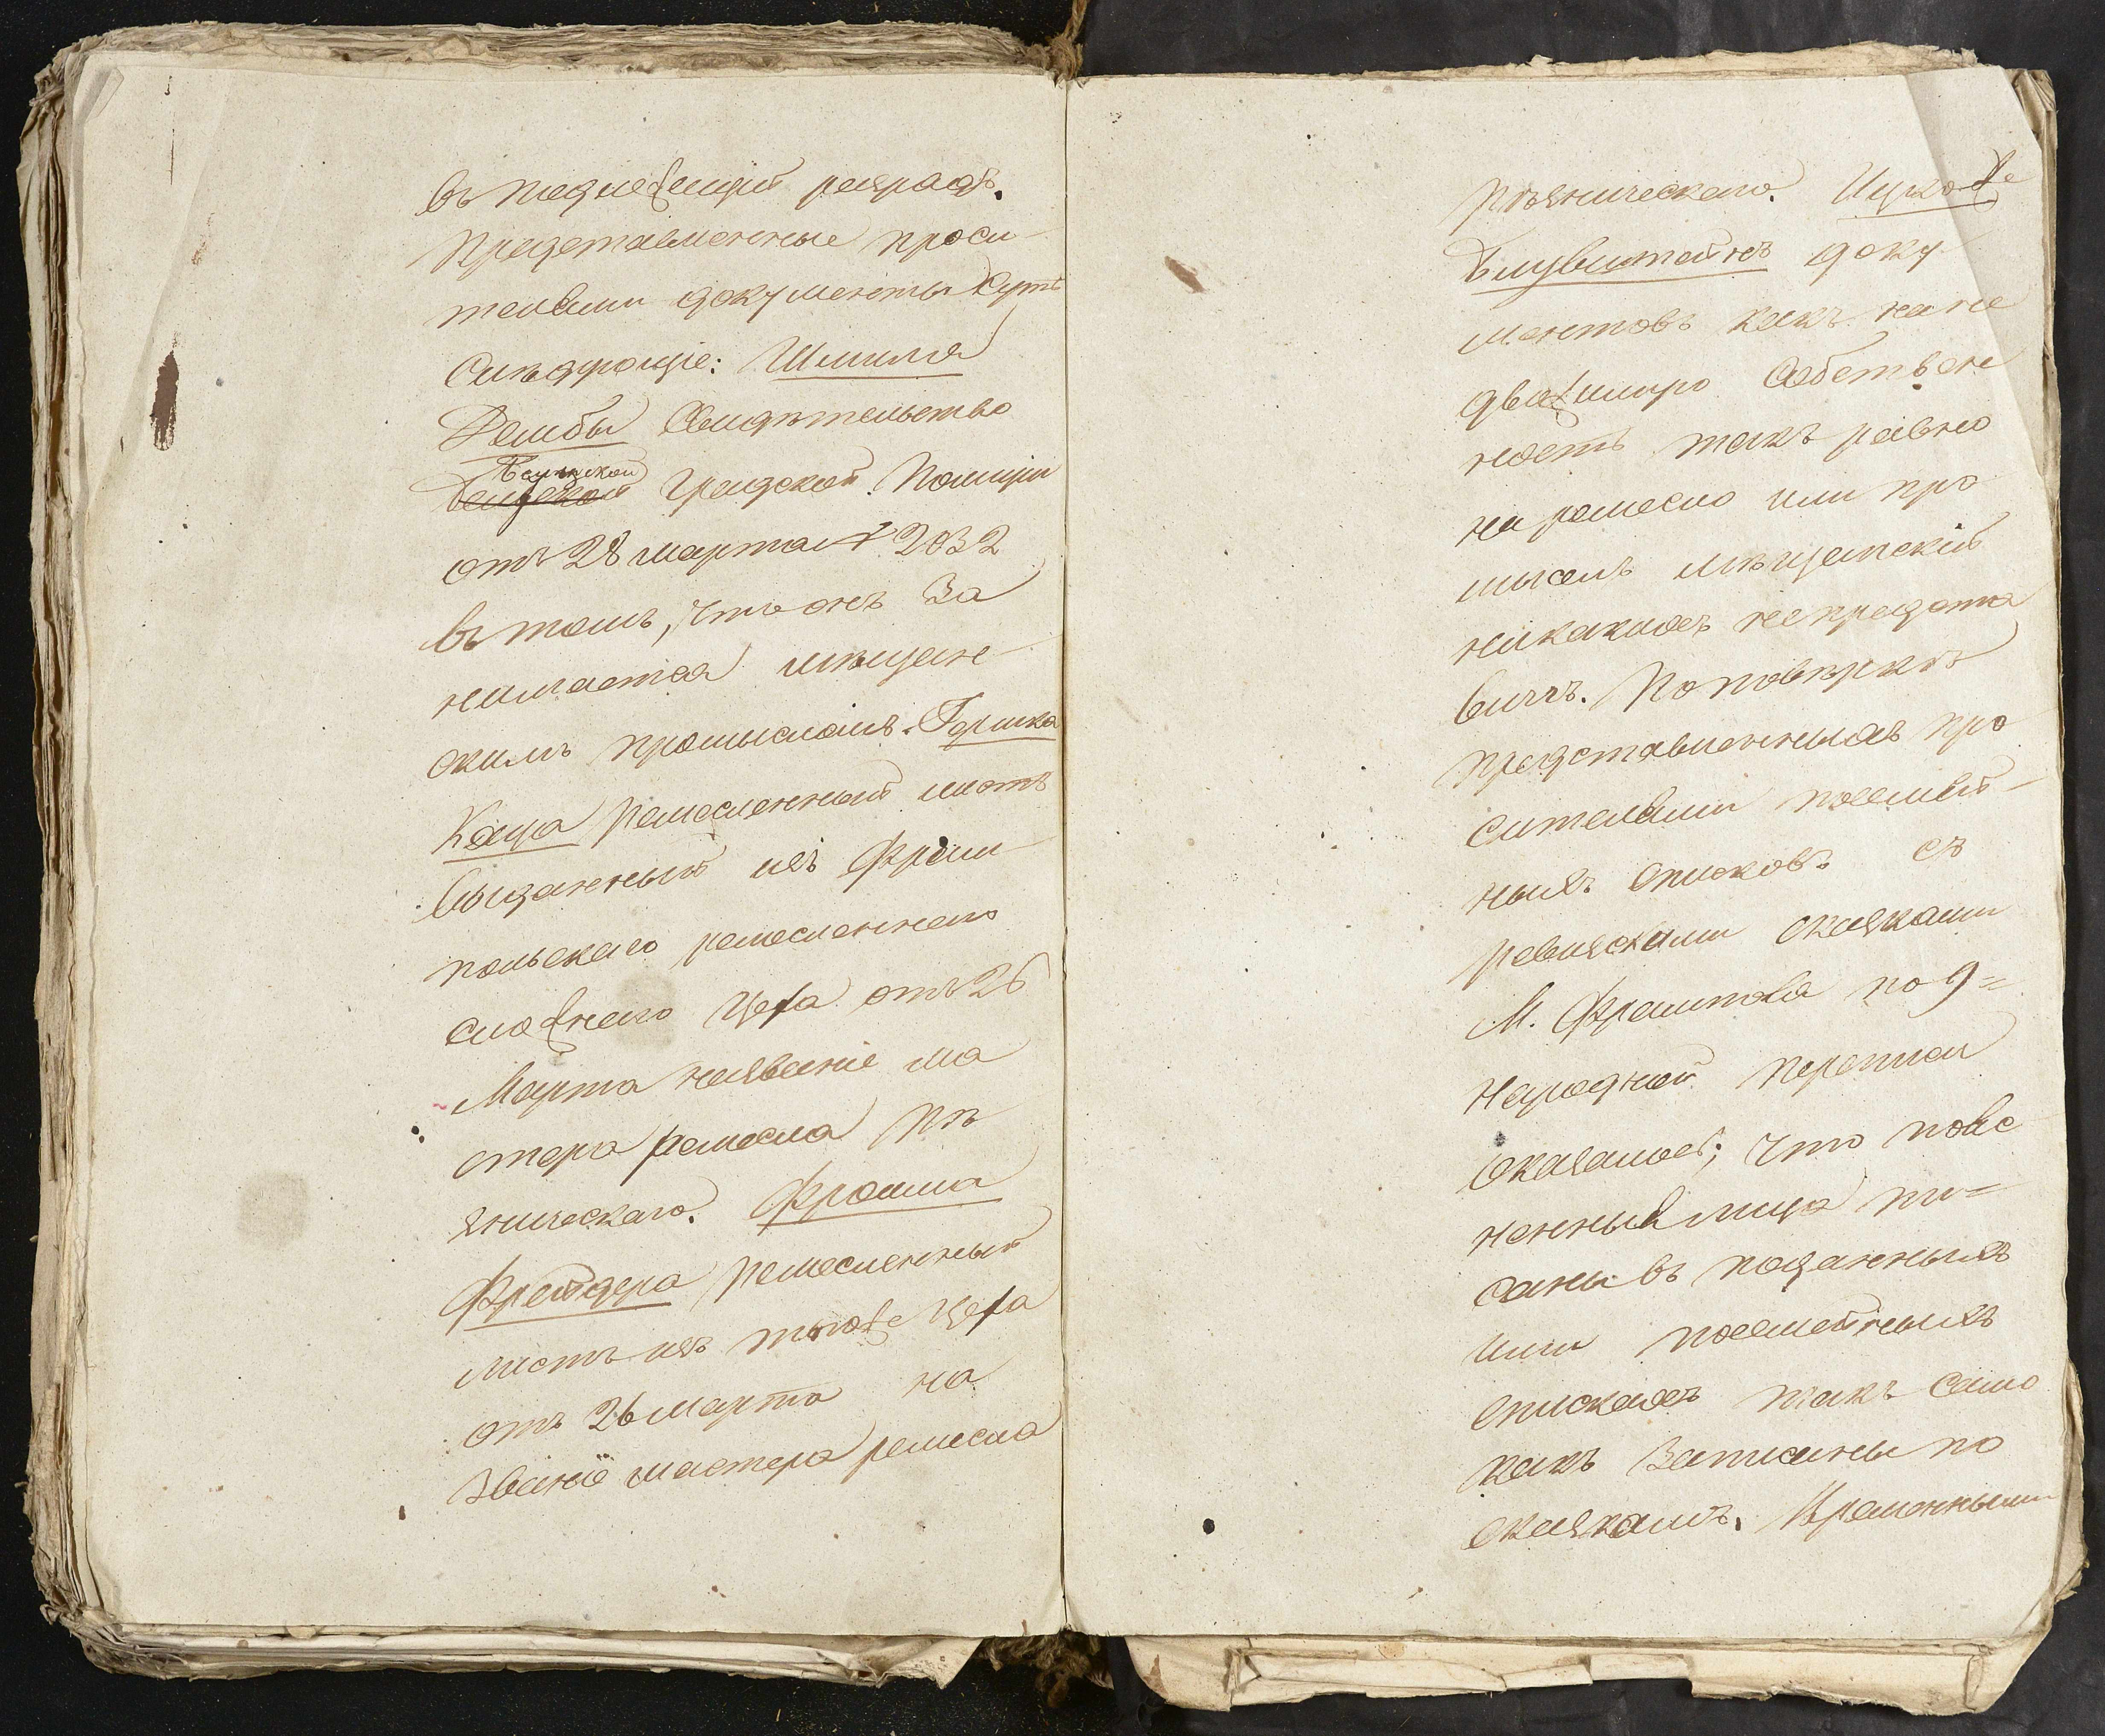 въ подлежащій разрядъ.
Представленные проси-
телями документы суть
слѣдующіе: Шмиля
Рейбы Свидѣтельство
Бѣлицкой
Градской Полиціи
отъ 28 марта № 2032
въ томъ, что онъ за
нимается мѣщан-
скимъ промысломъ. Гершка
Каца ремесленный листъ
выданный изъ Фрам-
польскаго ремесленнаго
сложнаго Цеха отъ 26
Марта на званіе ма
стера ремесла пѣ
зническаго. Фроима
Фрейдера ремесленный
листъ изъ тогоже Цеха
отъ 26 марта на
званіе мастера ремесла
пѣзническаго. Ицкоже
Блувштейнъ доку-
ментовъ какъ на не
движимую собствен
ность такъ равно
на ремесло или про
мыслъ мѣщанскій
никакихъ не предста
вилъ. По повѣркѣ
представленныхъ про
сителями посемей-
ныхъ списковъ съ
ревизскими сказками
М. Фрамполя по 9=
Народной переписи
оказалось, что поясе
ненныя лица пи=
саны въ поданныхъ
ими посемейныхъ
спискахъ такъ само
какъ записаны по
сказкамъ. Временными